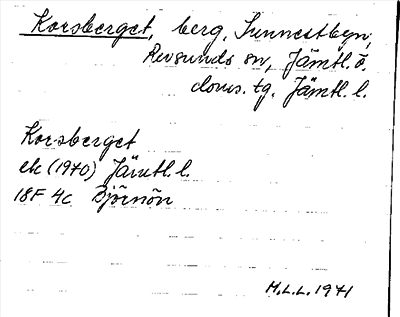 Korsberget, berg, Sunnestbyn,
Revsunds sn, Jämtl. ö.
doms. tg. Jämtl. l.
Korsberget
ek (1970) Jämtl. l.
18F 4c Björnön
M.L.L. 1971